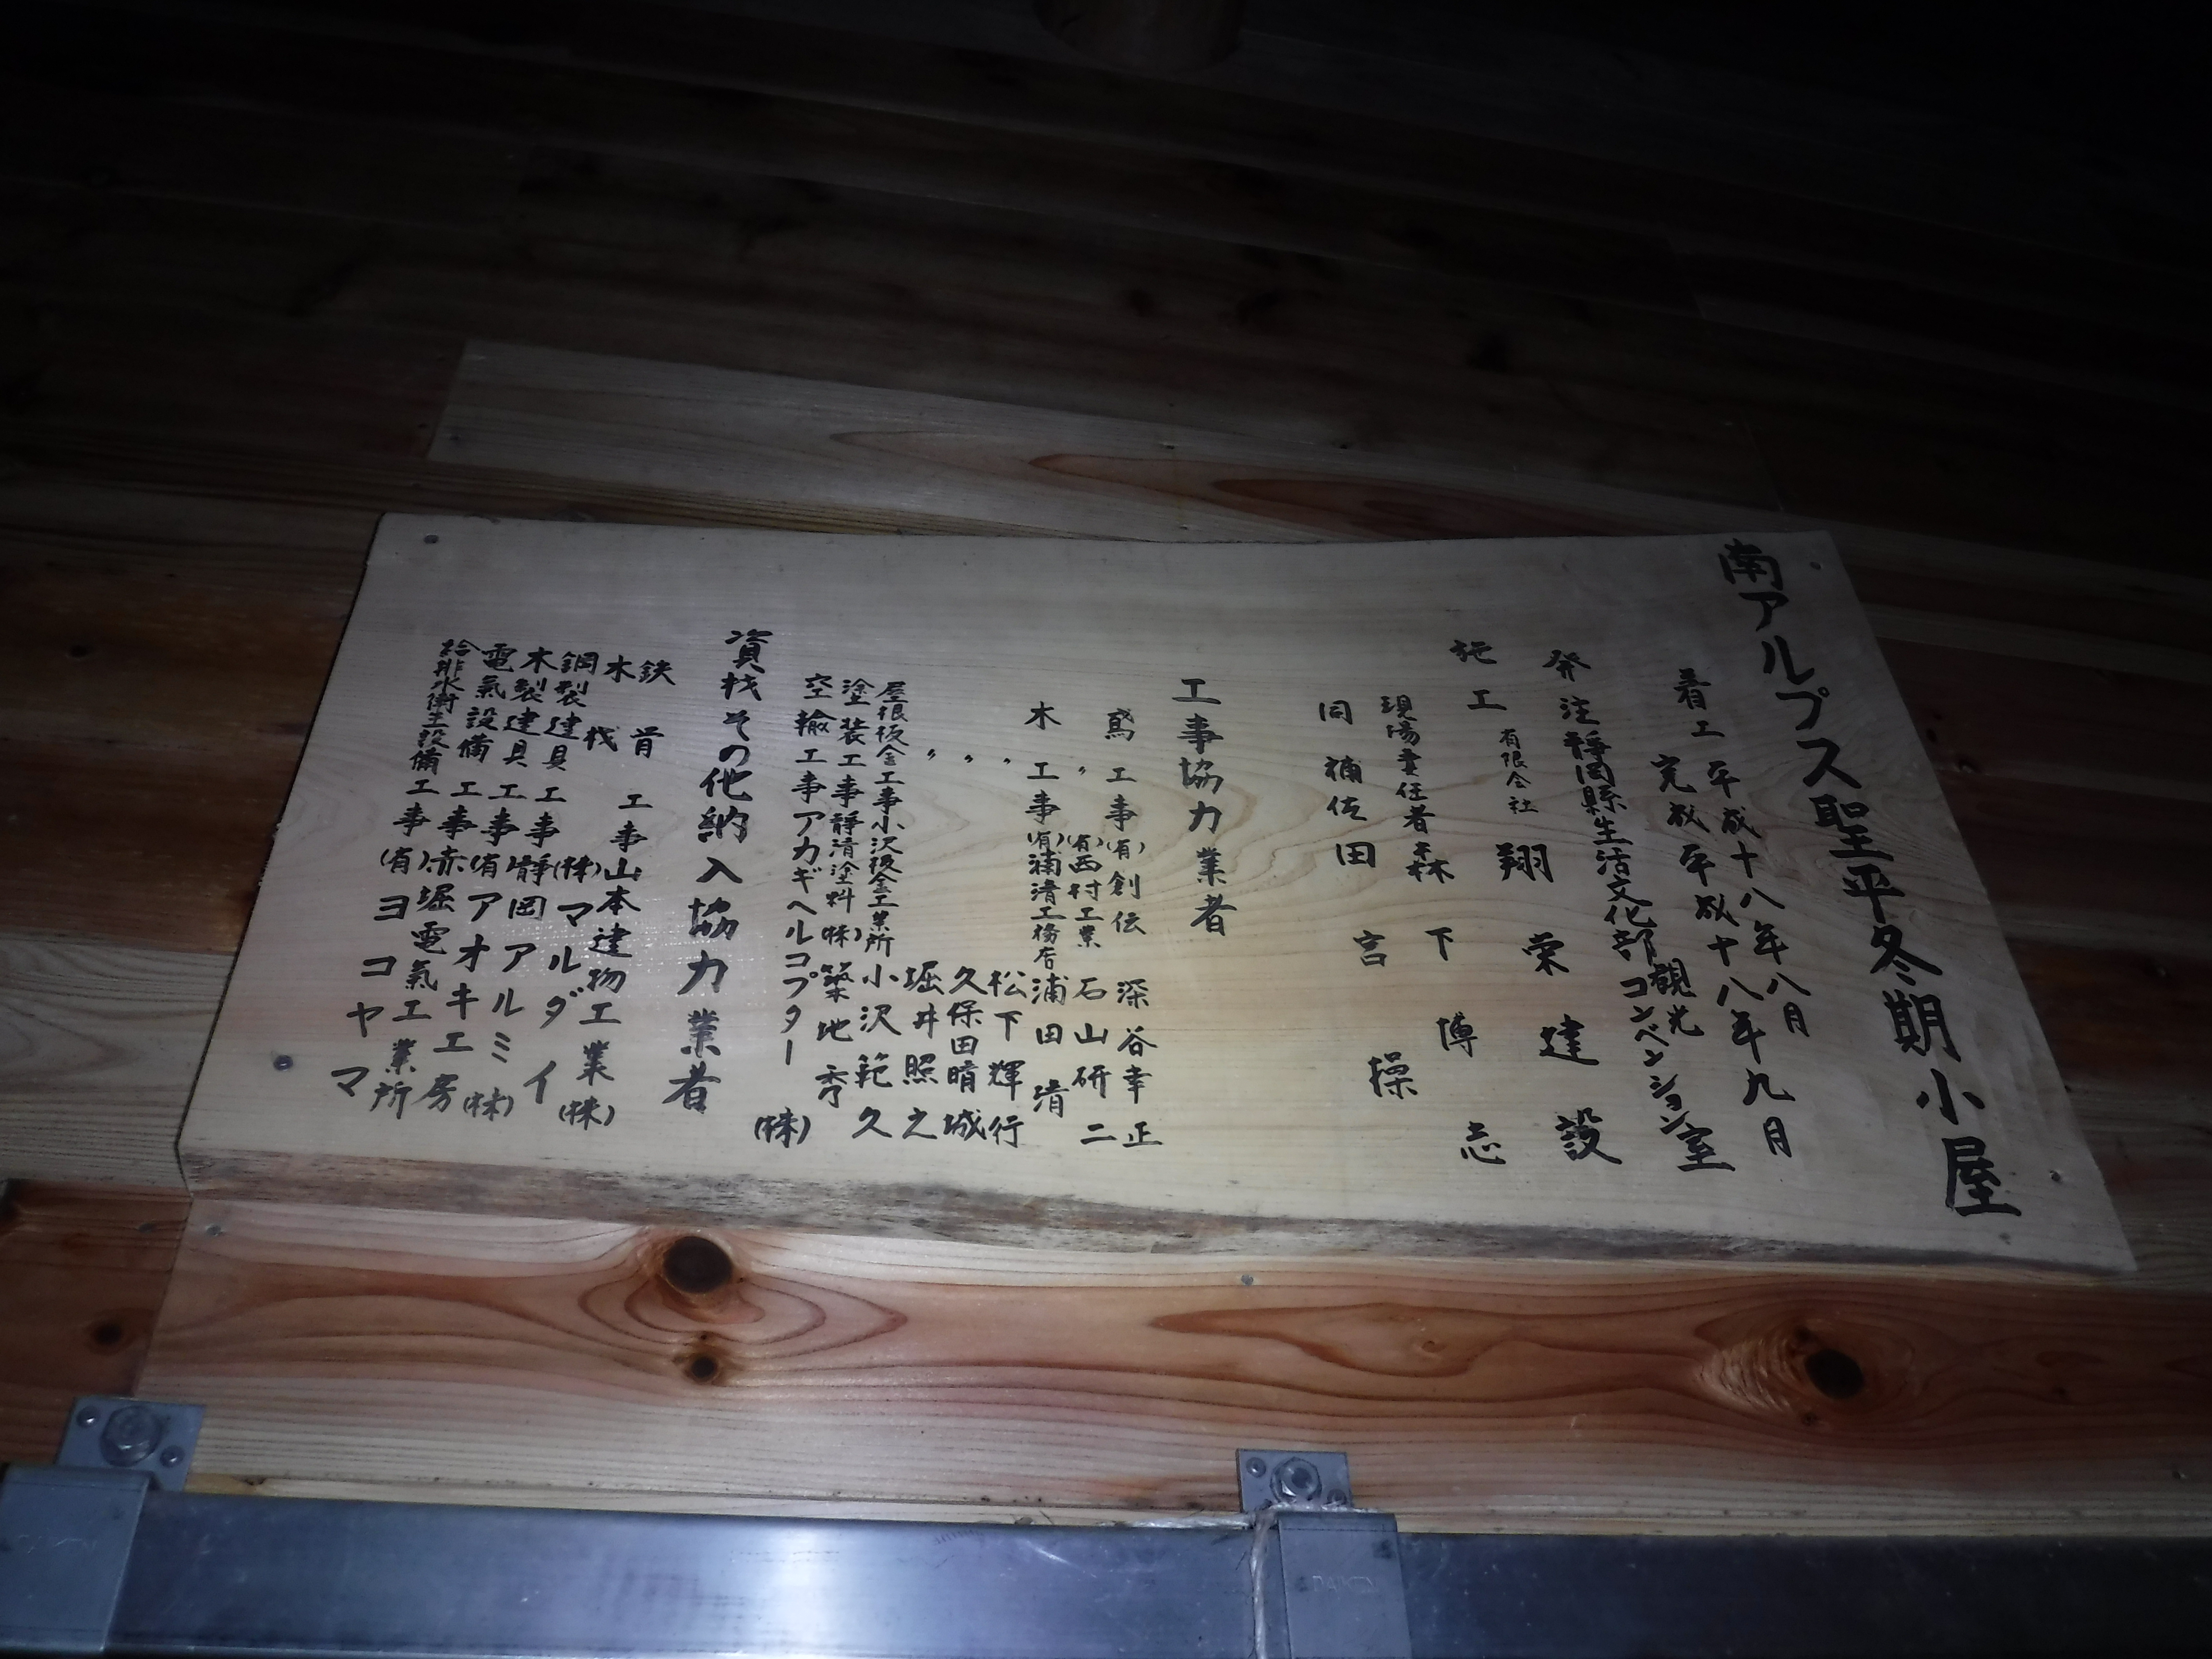 南アルプス聖平冬期小屋
着工 平成十八年八月
完成 平成十八年九月
発注 静岡縣生活文化部 観光コンベンション室
施工 有限会社 翔栄建設
現場責任者 森下博志
同補佐 田宮操
工事協力業者
鳶工事 (有)創伝 深谷幸正
〃 (有)西村工業 石山研二
木工事 (有)浦清工務店 浦田清
〃 松下輝行
〃 久保田晴城
〃 堀井照之
屋根板金工事 小沢板金工業所 小沢範久
塗装工事 静清塗料(株) 築地秀
空輸工事 アカギヘルコプター(株)
資材その他納入協力業者
鉄骨工事 山本建物工業(株)
木材 (株)マルダイ
鋼製建具工事 静岡アルミ(株)
木製建具工事 (有)アオキ工房
電氣設備工事 赤堀電氣工業所
給排水衛生設備工事 (有)ヨコヤマ